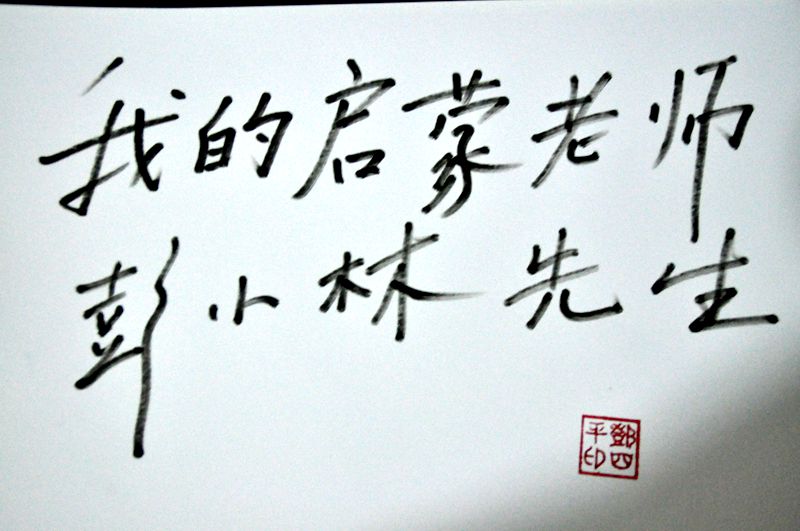 我的启蒙老师
彭小林先生
鄧四平印